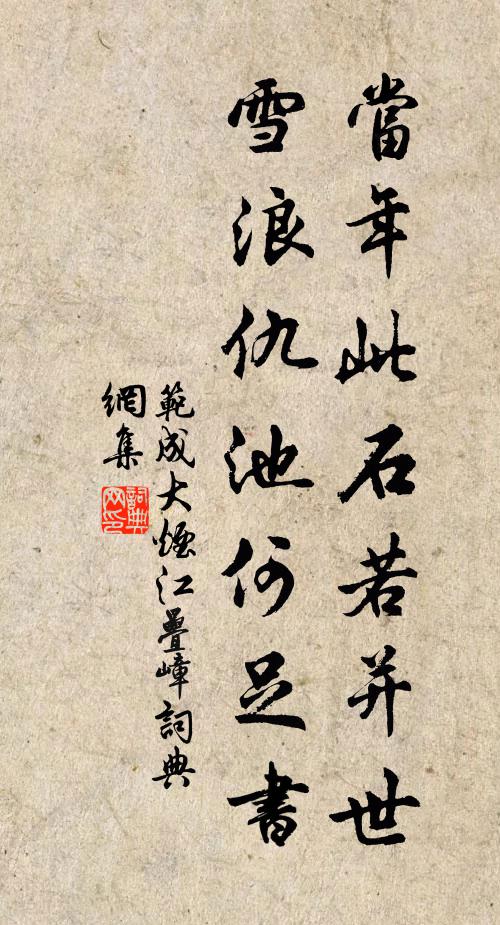 當年此石若并世
雪浪仇池何足書
範成大煙江疊嶂詞典
網集
詞典
网印